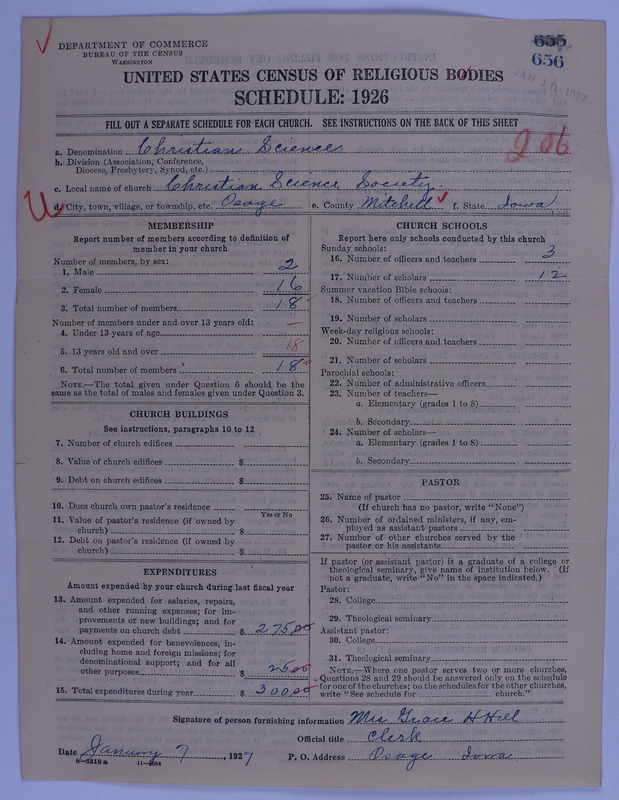 DEPARTMENT OF COMMERCE
BUREAU OF THE CENSUS
WASHINGTON
655
656
JAN 10 1927
UNITED STATES CENSUS OF RELIGIOUS BODIES
SCHEDULE: 1926
FILL OUT A SEPARATE SCHEDULE FOR EACH CHURCH. SEE INSTRUCTIONS ON THE BACK OF THIS SHEET
206
a. Denomination Christian Science
b. Division (Association, Conference,
Diocese, Presbytery, Synod, etc.)
c. Local name of church Christian Science Society.
d. City, town, village, or township, etc. Osage e. County Mitchell f. State Iowa
MEMBERSHIP
Report number of members according to definition of
member in your church
Number of members, by sex:
1. Male 2
2. Female 16
3. Total number of members 18
Number of members under and over 13 years old:
4. Under 13 years of age —
5. 13 years old and over 18
6. Total number of members 18
NOTE.—The total given under Question 6 should be the
same as the total of males and females given under Question 3.
CHURCH BUILDINGS
See instructions, paragraphs 10 to 12
7. Number of church edifices
8. Value of church edifices $
9. Debt on church edifices $
10. Does church own pastor's residence
Yes or No
11. Value of pastor's residence (if owned by
church) $
12. Debt on pastor's residence (if owned by
church) $
EXPENDITURES
Amount expended by your church during last fiscal year
13. Amount expended for salaries, repairs,
and other running expenses; for im-
provements or new buildings; and for
payments on church debt $ 275 00
14. Amount expended for benevolences, in-
cluding home and foreign missions; for
denominational support; and for all
other purposes $ 25 00
15. Total expenditures during year $ 300 00
CHURCH SCHOOLS
Report here only schools conducted by this church
Sunday schools:
16. Number of officers and teachers 3
17. Number of scholars 12
Summer vacation Bible schools:
18. Number of officers and teachers
19. Number of scholars
Week-day religious schools:
20. Number of officers and teachers
21. Number of scholars
Parochial schools:
22. Number of administrative officers
23. Number of teachers—
a. Elementary (grades 1 to 8)
b. Secondary
24. Number of scholars—
a. Elementary (grades 1 to 8)
b. Secondary
PASTOR
25. Name of pastor
(If church has no pastor, write "None")
26. Number of ordained ministers, if any, em-
ployed as assistant pastors
27. Number of other churches served by the
pastor or his assistants
If pastor (or assistant pastor) is a graduate of a college or
theological seminary, give name of institution below. (If
not a graduate, write "No" in the space indicated.)
Pastor:
28. College
29. Theological seminary
Assistant pastor:
30. College
31. Theological seminary
NOTE.—Where one pastor serves two or more churches,
Questions 28 and 29 should be answered only on the schedule
for one of the churches; on the schedules for the other churches,
write "See schedule for church."
Signature of person furnishing information Mrs Grace H Hill
Official title Clerk
Date January 7, 1927 P. O. Address Osage Iowa
8-5518 a 11-9024